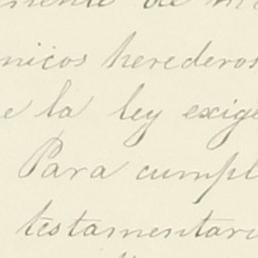 mente de m
nicos herederos
e la ley exige
Para cumpl
testamentari